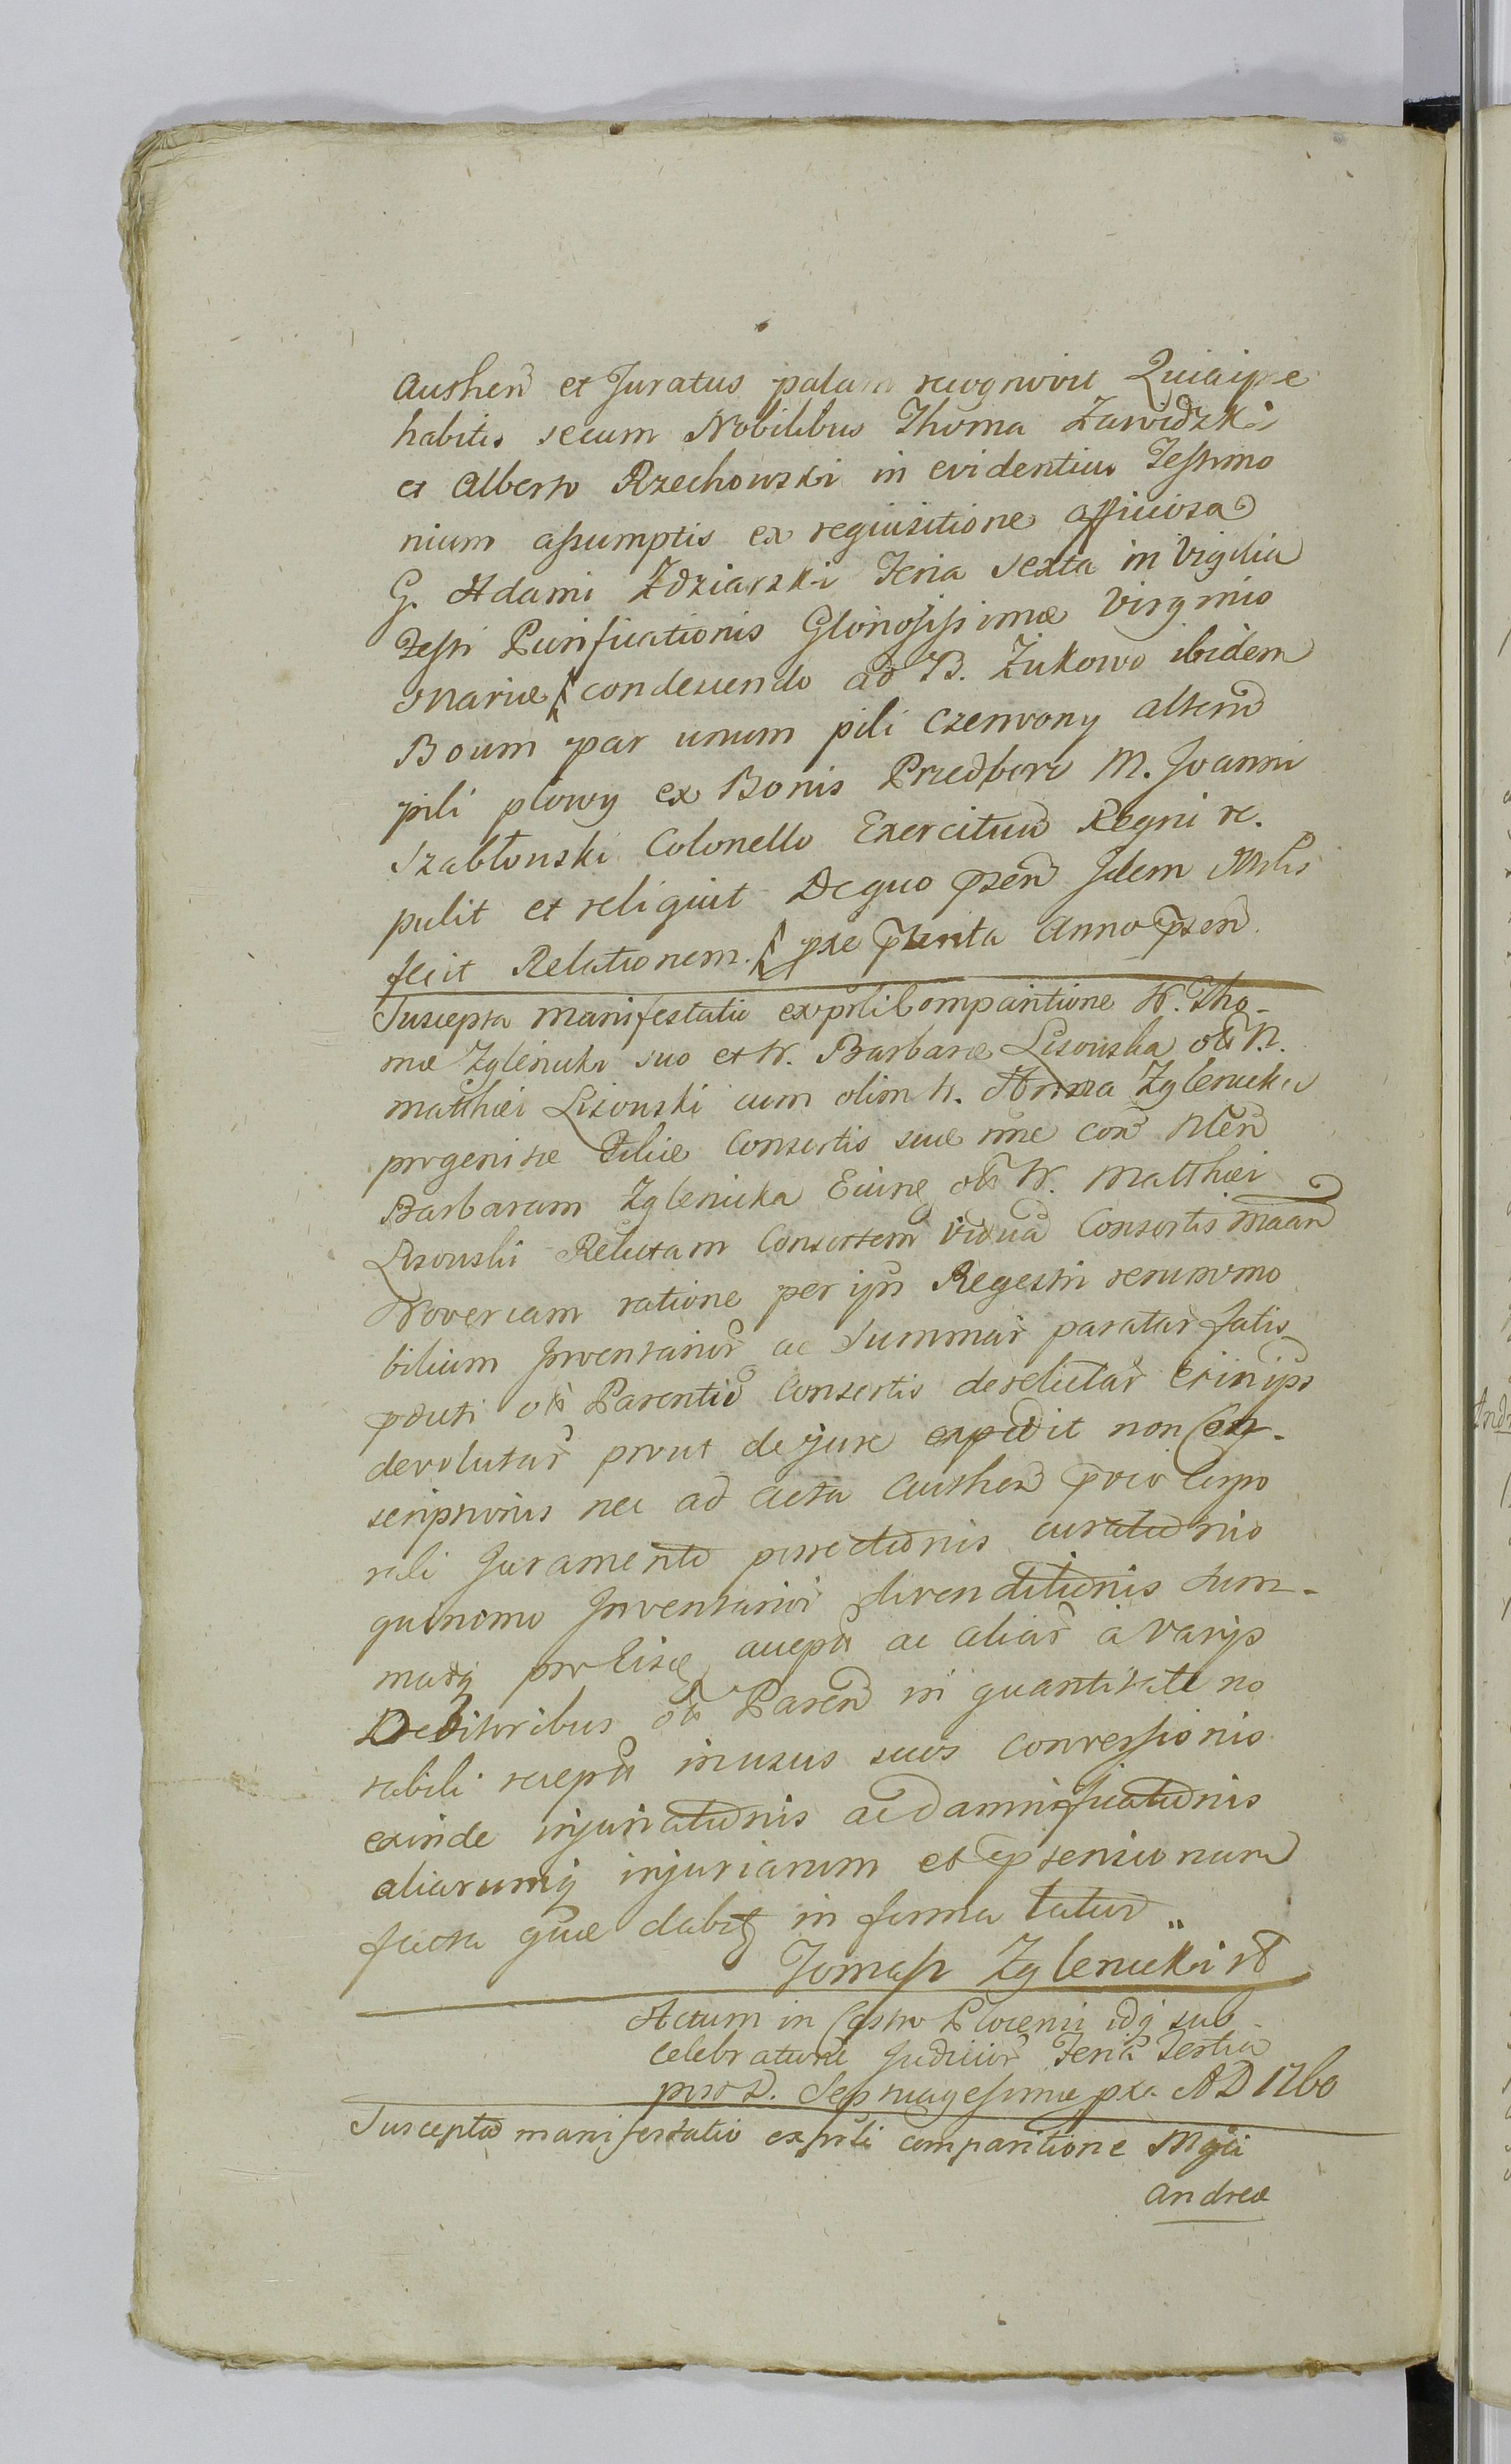 authen et Juratus palam recognovit Quia ipse
habitis secum Nobilibus Thoma Zawidzki
et Alberto Rzechowski in evidentius Testimo
nium assumptis ex requisitione officiosa
G. Adami Zdziarski Feria Sexta in Vigilia
Festi Purificationis Gloriosissimæ Virginis
Mariæ condescendo ad B. Żukowo ibidem
Boum par unum pili czerwony alterū
pili płowy ex Bonis Przedborz M. Joanni
Szabłouski Colonello Exercituū Regni re.
pulit et reliquit De quo pzen Idem Mlis
fecit Relationem. pxe pterita Anno pzen
Suscepta manifestatio ex psli Comparitione N. Tho-
mæ Zglenicki suo et N. Barbaræ Lisouska olī N.
Matthiæi Lisouski cum olim N. Anna Zglenicka
progenitæ Filiæ Consortis suæ nne con Nlen
Barbaram Zglenicka Eiusq olī N. Matthiæi
Lisouski Relictam Consortem Viduā Consortis
Novercam ratione per ips Regestri rerum mo
bilium Inventarior ac Summar paratar satis
pduti olī Parentis Consortis derelictar et in ips
devolutar prout de jure expedit non Con-
scriptionis nec ad Acta Authen prio Corpo
rali Juramento porrectionis curationis
quinimo Inventarior divenditionis Sum-
marq pro lisq accept ac aliar a varijs
Debitoribus olī Paren in quantitate no
tabili recept in usus suos Conversionis
exinde injuriationis ac damnificationis
aliarumq injuriarum et ptensionum
facta quæ dabit in forma latiori „
Tomasz Zglenicki
Actum in Castro Plocensi idq sub
Celebratione Judicior Feria Tertia
post D. Septuagesimæ pxa AD 1760
Suscepta manifestatio ex psli comparitione Mgci
Andreæ